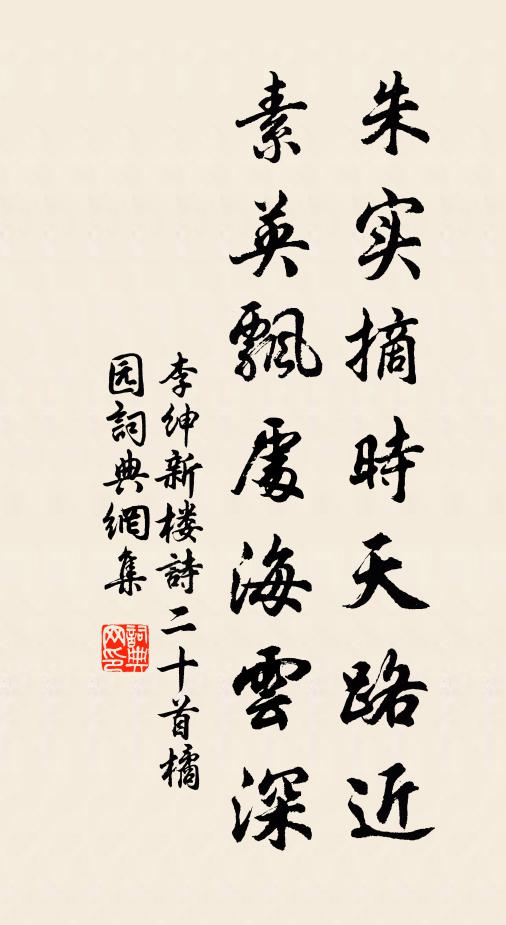 朱实摘時天路近
素英飄處海雲深
李绅新楼詩二十首橘
园詞典網集
詞典
网印